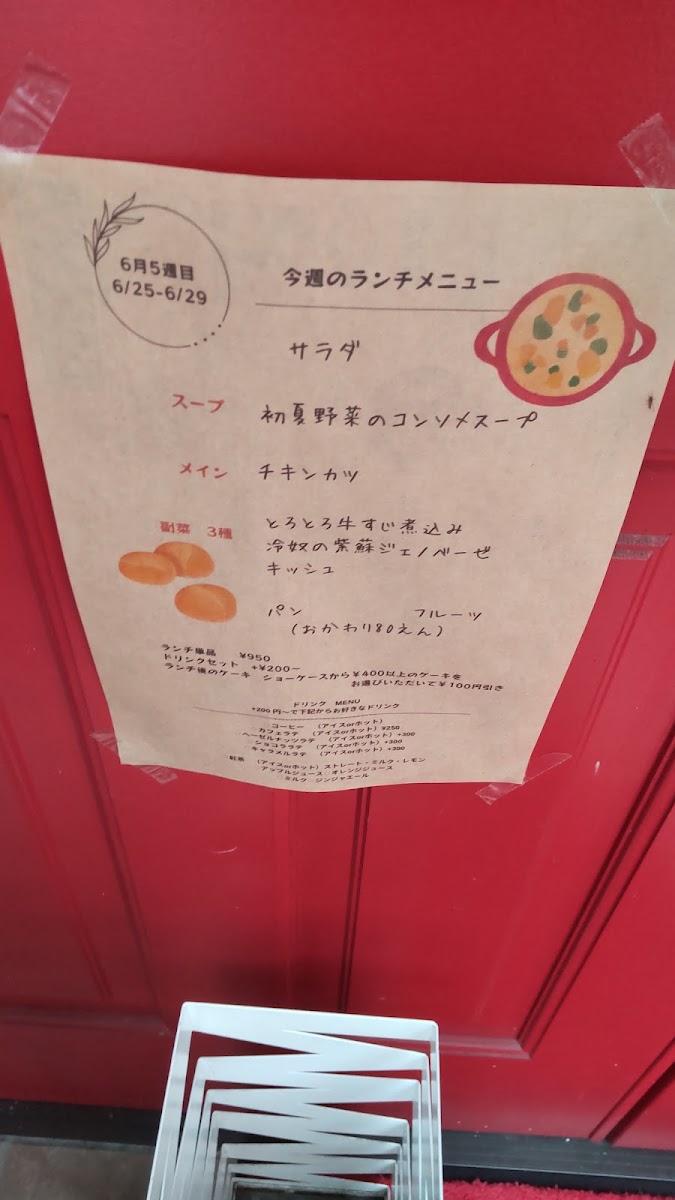 6月5週目
6/25-6/29
今週のランチメニュー
サラダ
スープ 初夏野菜のコンソメスープ
メイン チキンカツ
副菜 3種 とろとろ牛すじ煮込み
冷奴の紫蘇ジェノベーゼ
キッシュ
パン フルーツ
(おかわり80えん)
ランチ単品 ¥950
ドリンクセット +¥200~
ランチ後のケーキ ショーケースから¥400以上のケーキを
お選びいただいて¥100円引き
ドリンク MENU
+200円~で下記からお好きなドリンク
コーヒー (アイスorホット)
カフェラテ (アイスorホット)¥250
ヘーゼルナッツラテ (アイスorホット)+300
ショコララテ (アイスorホット)+300
キャラメルラテ (アイスorホット)+300
紅茶 (アイスorホット)ストレート・ミルク・レモン
アップルジュース オレンジジュース
ミルク ジンジャエール